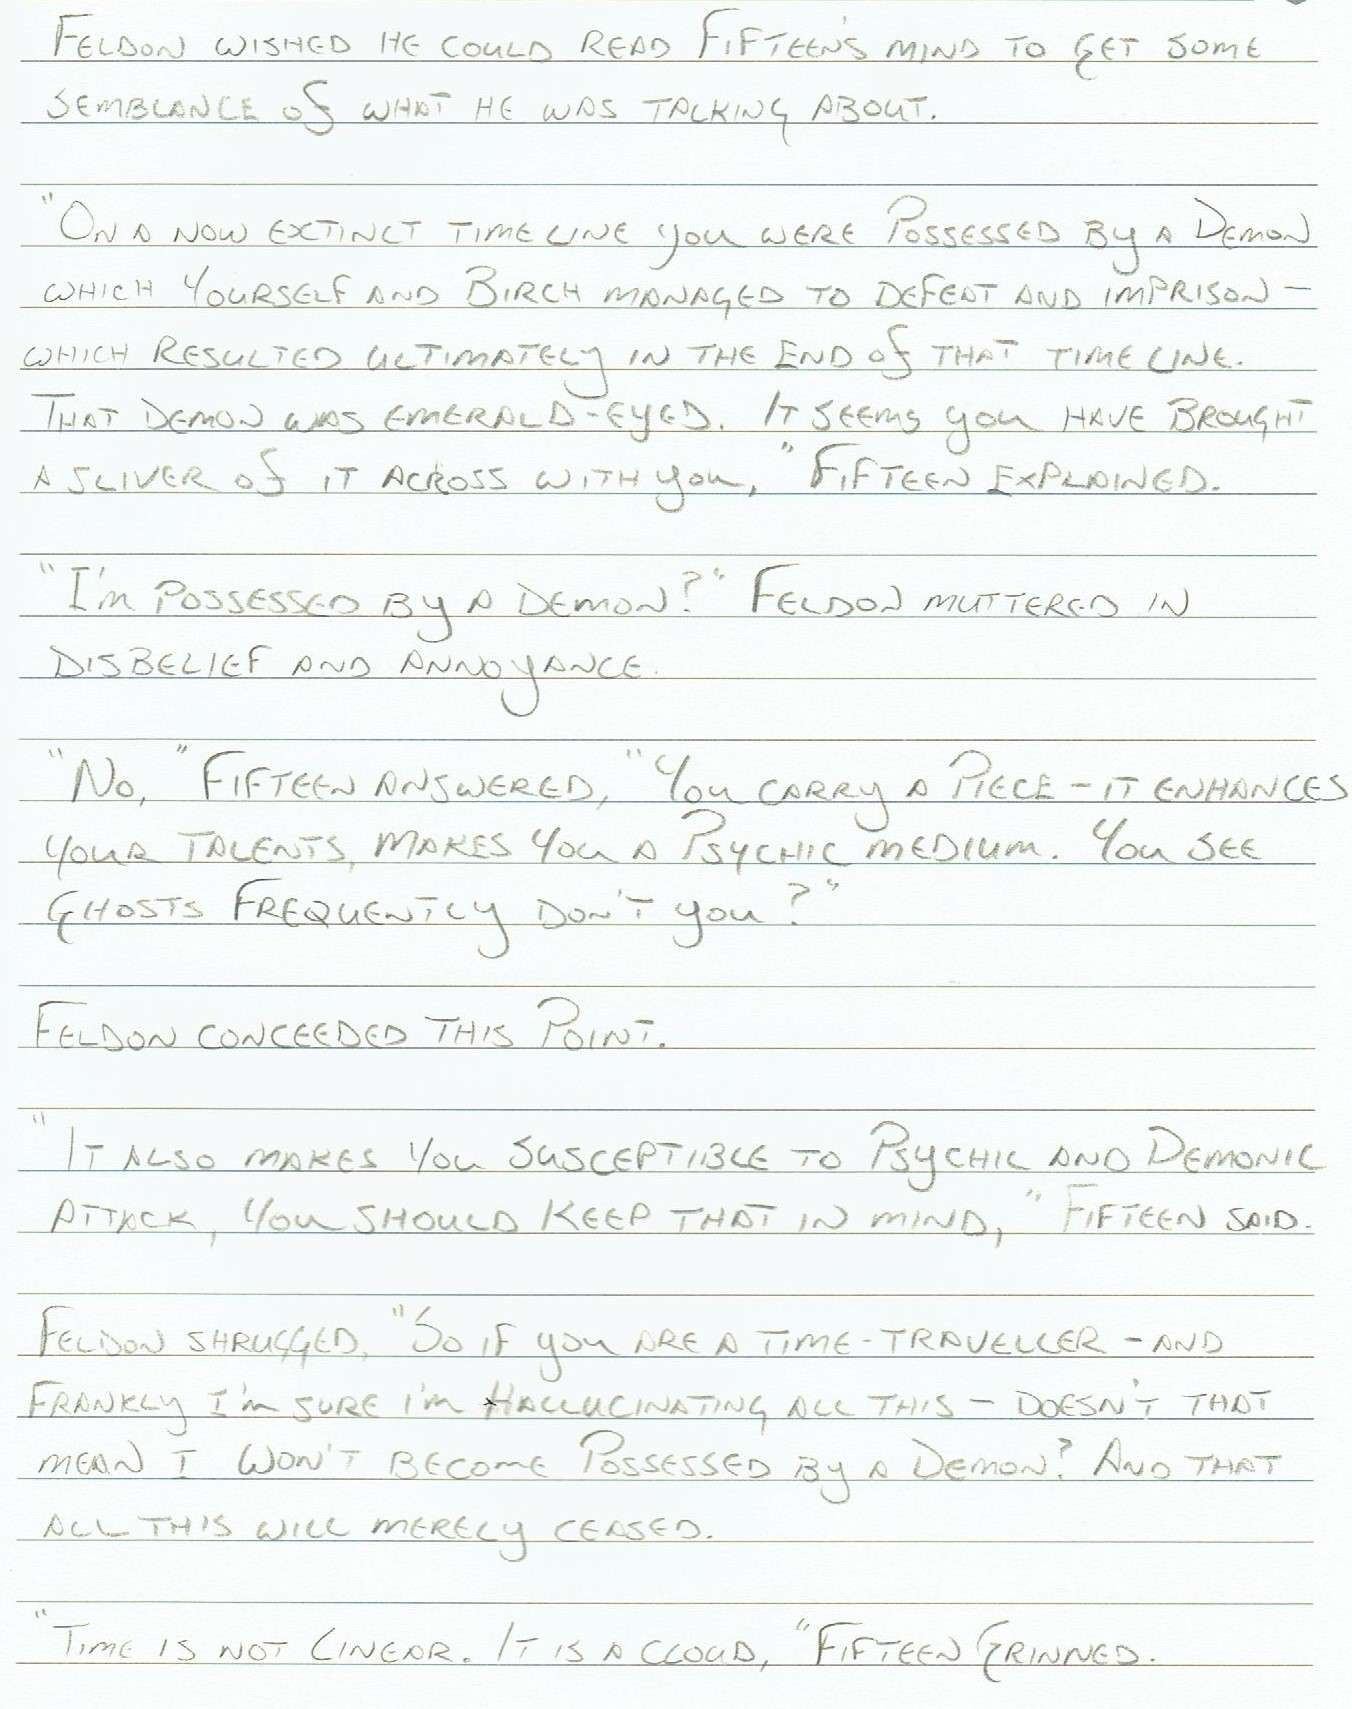 Feldon wished he could read Fifteen's mind to get some
semblance of what he was talking about.
"On a now extinct time line you were Possessed by a Demon
which Yourself and Birch managed to defeat and imprison –
which resulted ultimately in the End of that time line.
That Demon was emerald-eyed. It seems you have brought
a sliver of it across with you," Fifteen Explained.
"I'm possessed by a Demon?" Feldon muttered in
disbelief and annoyance.
"No," Fifteen answered, "You carry a Piece – it enhances
your talents, makes you a Psychic medium. You see
Ghosts Frequently don't you?"
Feldon conceeded this Point.
"It also makes you susceptible to Psychic and Demonic
attack, you should keep that in mind," Fifteen said.
Feldon shrugged, "So if you are a time-traveller – and
frankly I'm sure I'm Hallucinating all this – doesn't that
mean I won't become Possessed by a Demon? And that
all this will merely ceased.
"Time is not linear. It is a cloud," Fifteen Grinned.